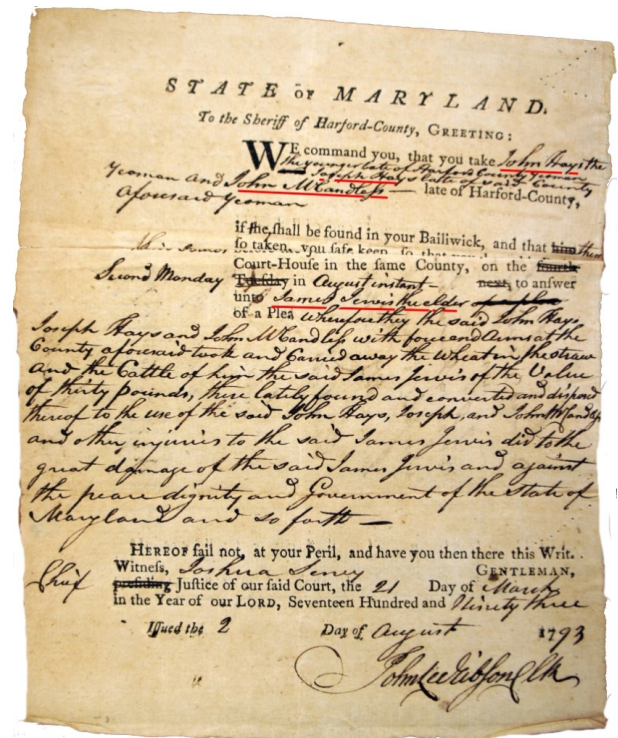 STATE OF MARYLAND.
To the Sheriff of Harford-County, GREETING:
WE command you, that you take John Hays the
the younger late of Harford County yeoman
Joseph Hays late of said County
yeoman and John McCandless — late of Harford-County,
aforesaid yeoman
if the, shall be found in your Bailiwick, and that him them
so taken, you safe keep, so that you
Court-House in the same County, on the fourth
Second Monday Tuesday in August instant next, to answer
unto James Jervis the elder
of a Plea wherefore they the said John Hays,
Joseph Hays and John McCandless with force and Arms at the
County aforesaid took and Carried away the Wheat in the straw
and the Cattle of him the said James Jervis of the Value
of thirty pounds, there lately found and converted and disposed
thereof to the use of the said John Hays, Joseph, and John McCandless
and other injuries to the said James Jervis did to the
great damage of the said James Jervis and against
the peace dignity and Government of the State of
Maryland and so forth —
HEREOF fail not, at your Peril, and have you then there this Writ.
Witness, Joshua Seney GENTLEMAN,
Chief presiding Justice of our said Court, the 21 Day of March
in the Year of our LORD, Seventeen Hundred and Ninety three
Issued the 2 Day of August 1793
John Lee Gibson Clk